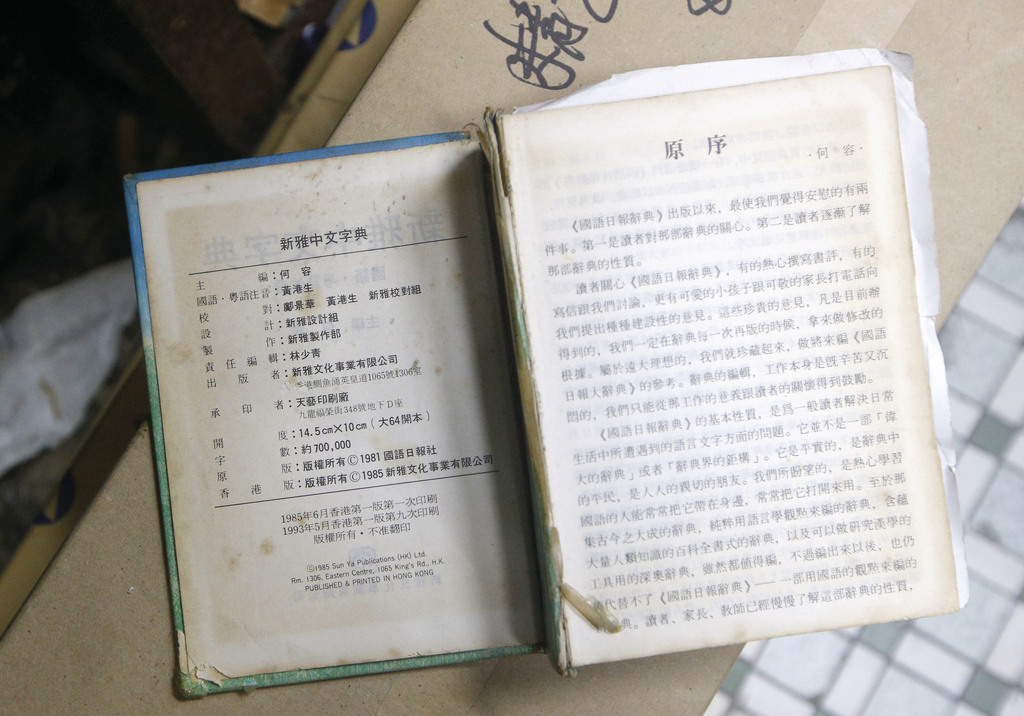 新雅中文字典
主編：何容
國語·粵語注音：黃港生
校對：鄺景華 黃港生 新雅校對組
設計：新雅設計組
製作：新雅製作部
責任編輯：林少青
出版者：新雅文化事業有限公司
香港鰂魚涌英皇道1065號1306室
承印者：天藝印刷廠
九龍福榮街348號地下D座
開度：14.5cm×10cm（大64開本）
字數：約700,000
原版：版權所有©1981國語日報社
香港版：版權所有©1985新雅文化事業有限公司
1985年6月香港第一版第一次印刷
1993年5月香港第一版第九次印刷
版權所有·不准翻印
©1985 Sun Ya Publications (HK) Ltd.
Rm. 1306, Eastern Centre, 1065 King's Rd., H.K.
PUBLISHED & PRINTED IN HONG KONG
原序
·何容·
《國語日報辭典》出版以來，最使我們覺得安慰的有兩
件事。第一是讀者對那部辭典的關心。第二是讀者逐漸了解
那部辭典的性質。
讀者關心《國語日報辭典》，有的熱心撰寫書評，有的
寫信跟我們討論，更有可愛的小孩子跟可敬的家長打電話向
我們提出種種建設性的意見。這些珍貴的意見，凡是目前辦
得到的，我們一定在辭典每一次再版的時候，拿來做修改的
根據。屬於遠大理想的，我們就珍藏起來，做將來編《國語
日報大辭典》的參考。辭典的編輯，工作本身是旣辛苦又沉
悶的，我們只能從那工作的意義跟讀者的關懷得到鼓勵。
《國語日報辭典》的基本性質，是爲一般讀者解決日常
生活中所遭遇到的語言文字方面的問題。它並不是一部「偉
大的辭典」或者「辭典界的距構」。它是平實的，是辭典中
的平民，是人人的親切的朋友。我們所盼望的，是熱心學習
國語的人能常常把它帶在身邊，常常把它打開來用。至於那
集古今之大成的辭典，純粹用語言學觀點來編的辭典，含蘊
大量人類知識的百科全書式的辭典，以及可以做研究漢學的
工具用的深奧辭典，雖然都值得編，不過編出來以後，也仍
代替不了《國語日報辭典》——一部用國語的觀點來編的
典。讀者、家長、敎師已經慢慢了解這部辭典的性質，